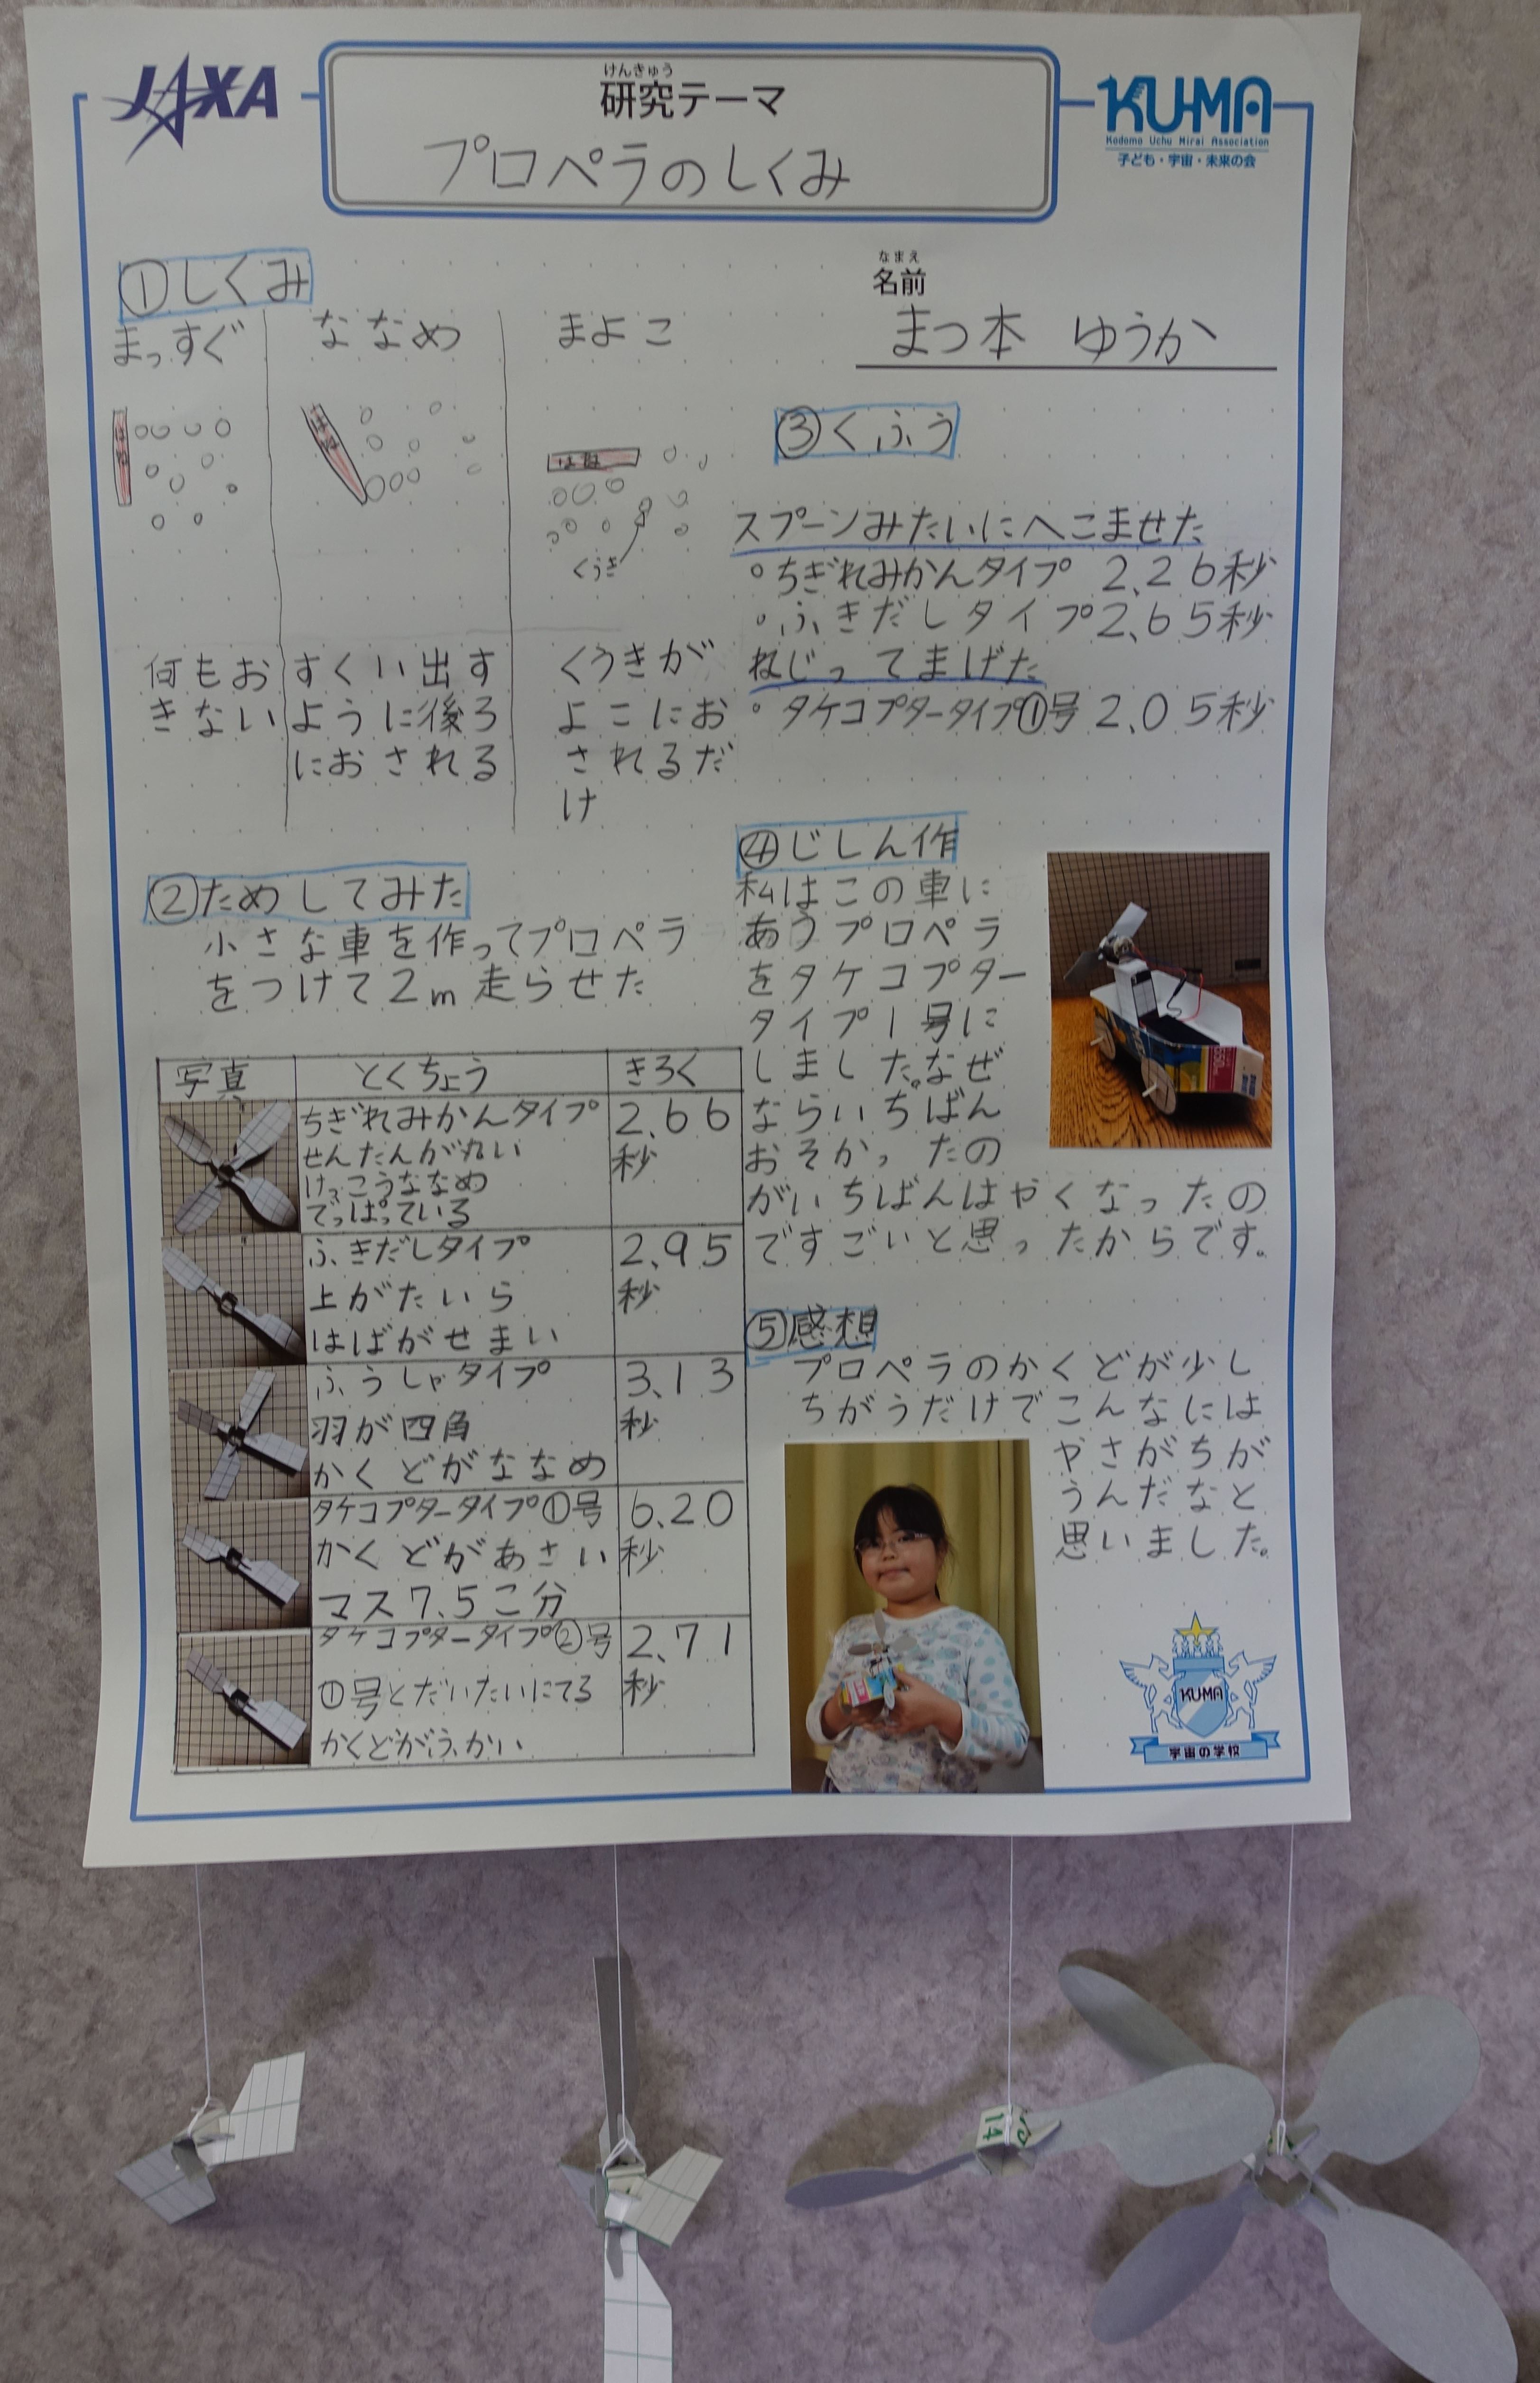 JAXA
けんきゅう
研究テーマ
プロペラのしくみ
KU-MA
Kodomo Uchu Mirai Association
子ども・宇宙・未来の会
なまえ
名前
まつ本 ゆうか
①しくみ
まっすぐ
はね
何もお
きない
ななめ
はね
すくい出す
ように後ろ
におされる
まよこ
はね
くうき
くうきが
よこにお
されるだ
け
②ためしてみた
小さな車を作ってプロペラ
をつけて2m走らせた
写真 とくちょう きろく
ちぎれみかんタイプ 2.66
せんたんが丸い 秒
けっこうななめ
でっぱっている
ふきだしタイプ 2.95
上がたいら 秒
はばがせまい
ふうしゃタイプ 3.13
羽が四角 秒
かくどがななめ
タケコプタータイプ①号 6.20
かくどがあさい 秒
マス7.5こ分
タケコプタータイプ②号 2.71
①号とだいたいにてる 秒
かくどがふかい
③くふう
スプーンみたいにへこませた
・ちぎれみかんタイプ 2.26秒
・ふきだしタイプ2.65秒
ねじってまげた
・タケコプタータイプ①号 2.05秒
④じしん作
私はこの車に
あうプロペラ
をタケコプター
タイプ1号に
しました。なぜ
ならいちばん
おそかったの
がいちばんはやくなったの
ですごいと思ったからです。
⑤感想
プロペラのかくどが少し
ちがうだけでこんなには
やさがちが
うんだなと
思いました。
KU-MA
宇宙の学校
14